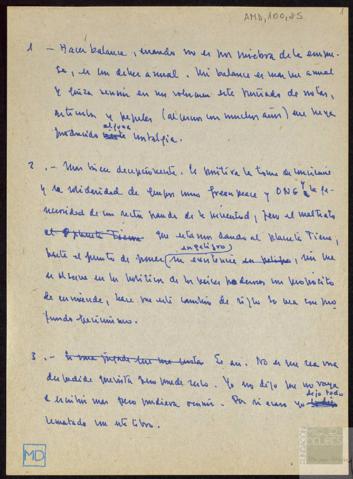 AMD, 100, 25
1
1 .- Hacer balance, cuando no es por quiebra de la empre-
sa, es un deber anual. Mi balance es más que anual
y quizá reunir en un volumen este puñado de notas,
artículos y papeles (algunos con muchos años) me haya
producido alguna nostalgia.
2 .- Más bien decepcionante. Es positiva la toma de conciencia
y la solidaridad de grupos como Greenpeace y ONG y la ge-
nerosidad de un sector grande de la juventud, pero el maltrato
el Planeta Tierra que estamos dando al planeta Tierra,
hasta el punto de poner (en peligro) su existencia en peligro, sin que
se observe en los políticos de los países poderosos un propósito
de enmienda, hace que este cambio de siglo lo vea con pro-
fundo pesimismo.
3 .- Es así. No es que sea una
despedida pero puede serlo. Yo no digo que no vaya
a escribir más pero pudiera ocurrir. Por si acaso yo dejo todo
rematado con este libro.
MD